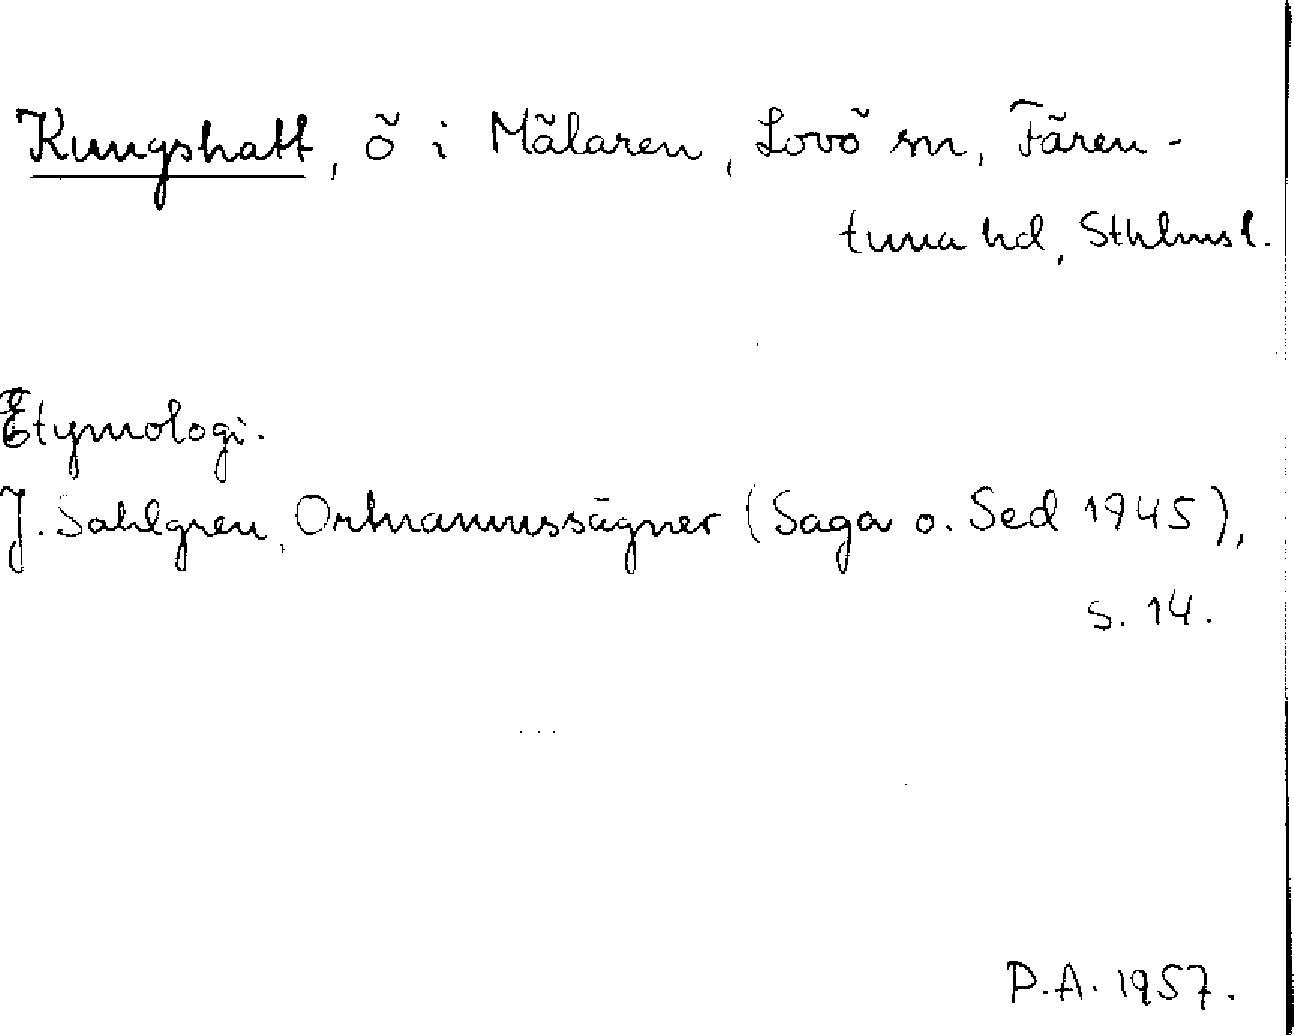 Kungshatt, ö i Mälaren, Lovö sn, Fären-
tuna hd, Sthlms l.
Etymologi.
J. Sahlgren, Ortnamnssägner (Saga o. Sed 1945),
s. 14.
P.A. 1957.